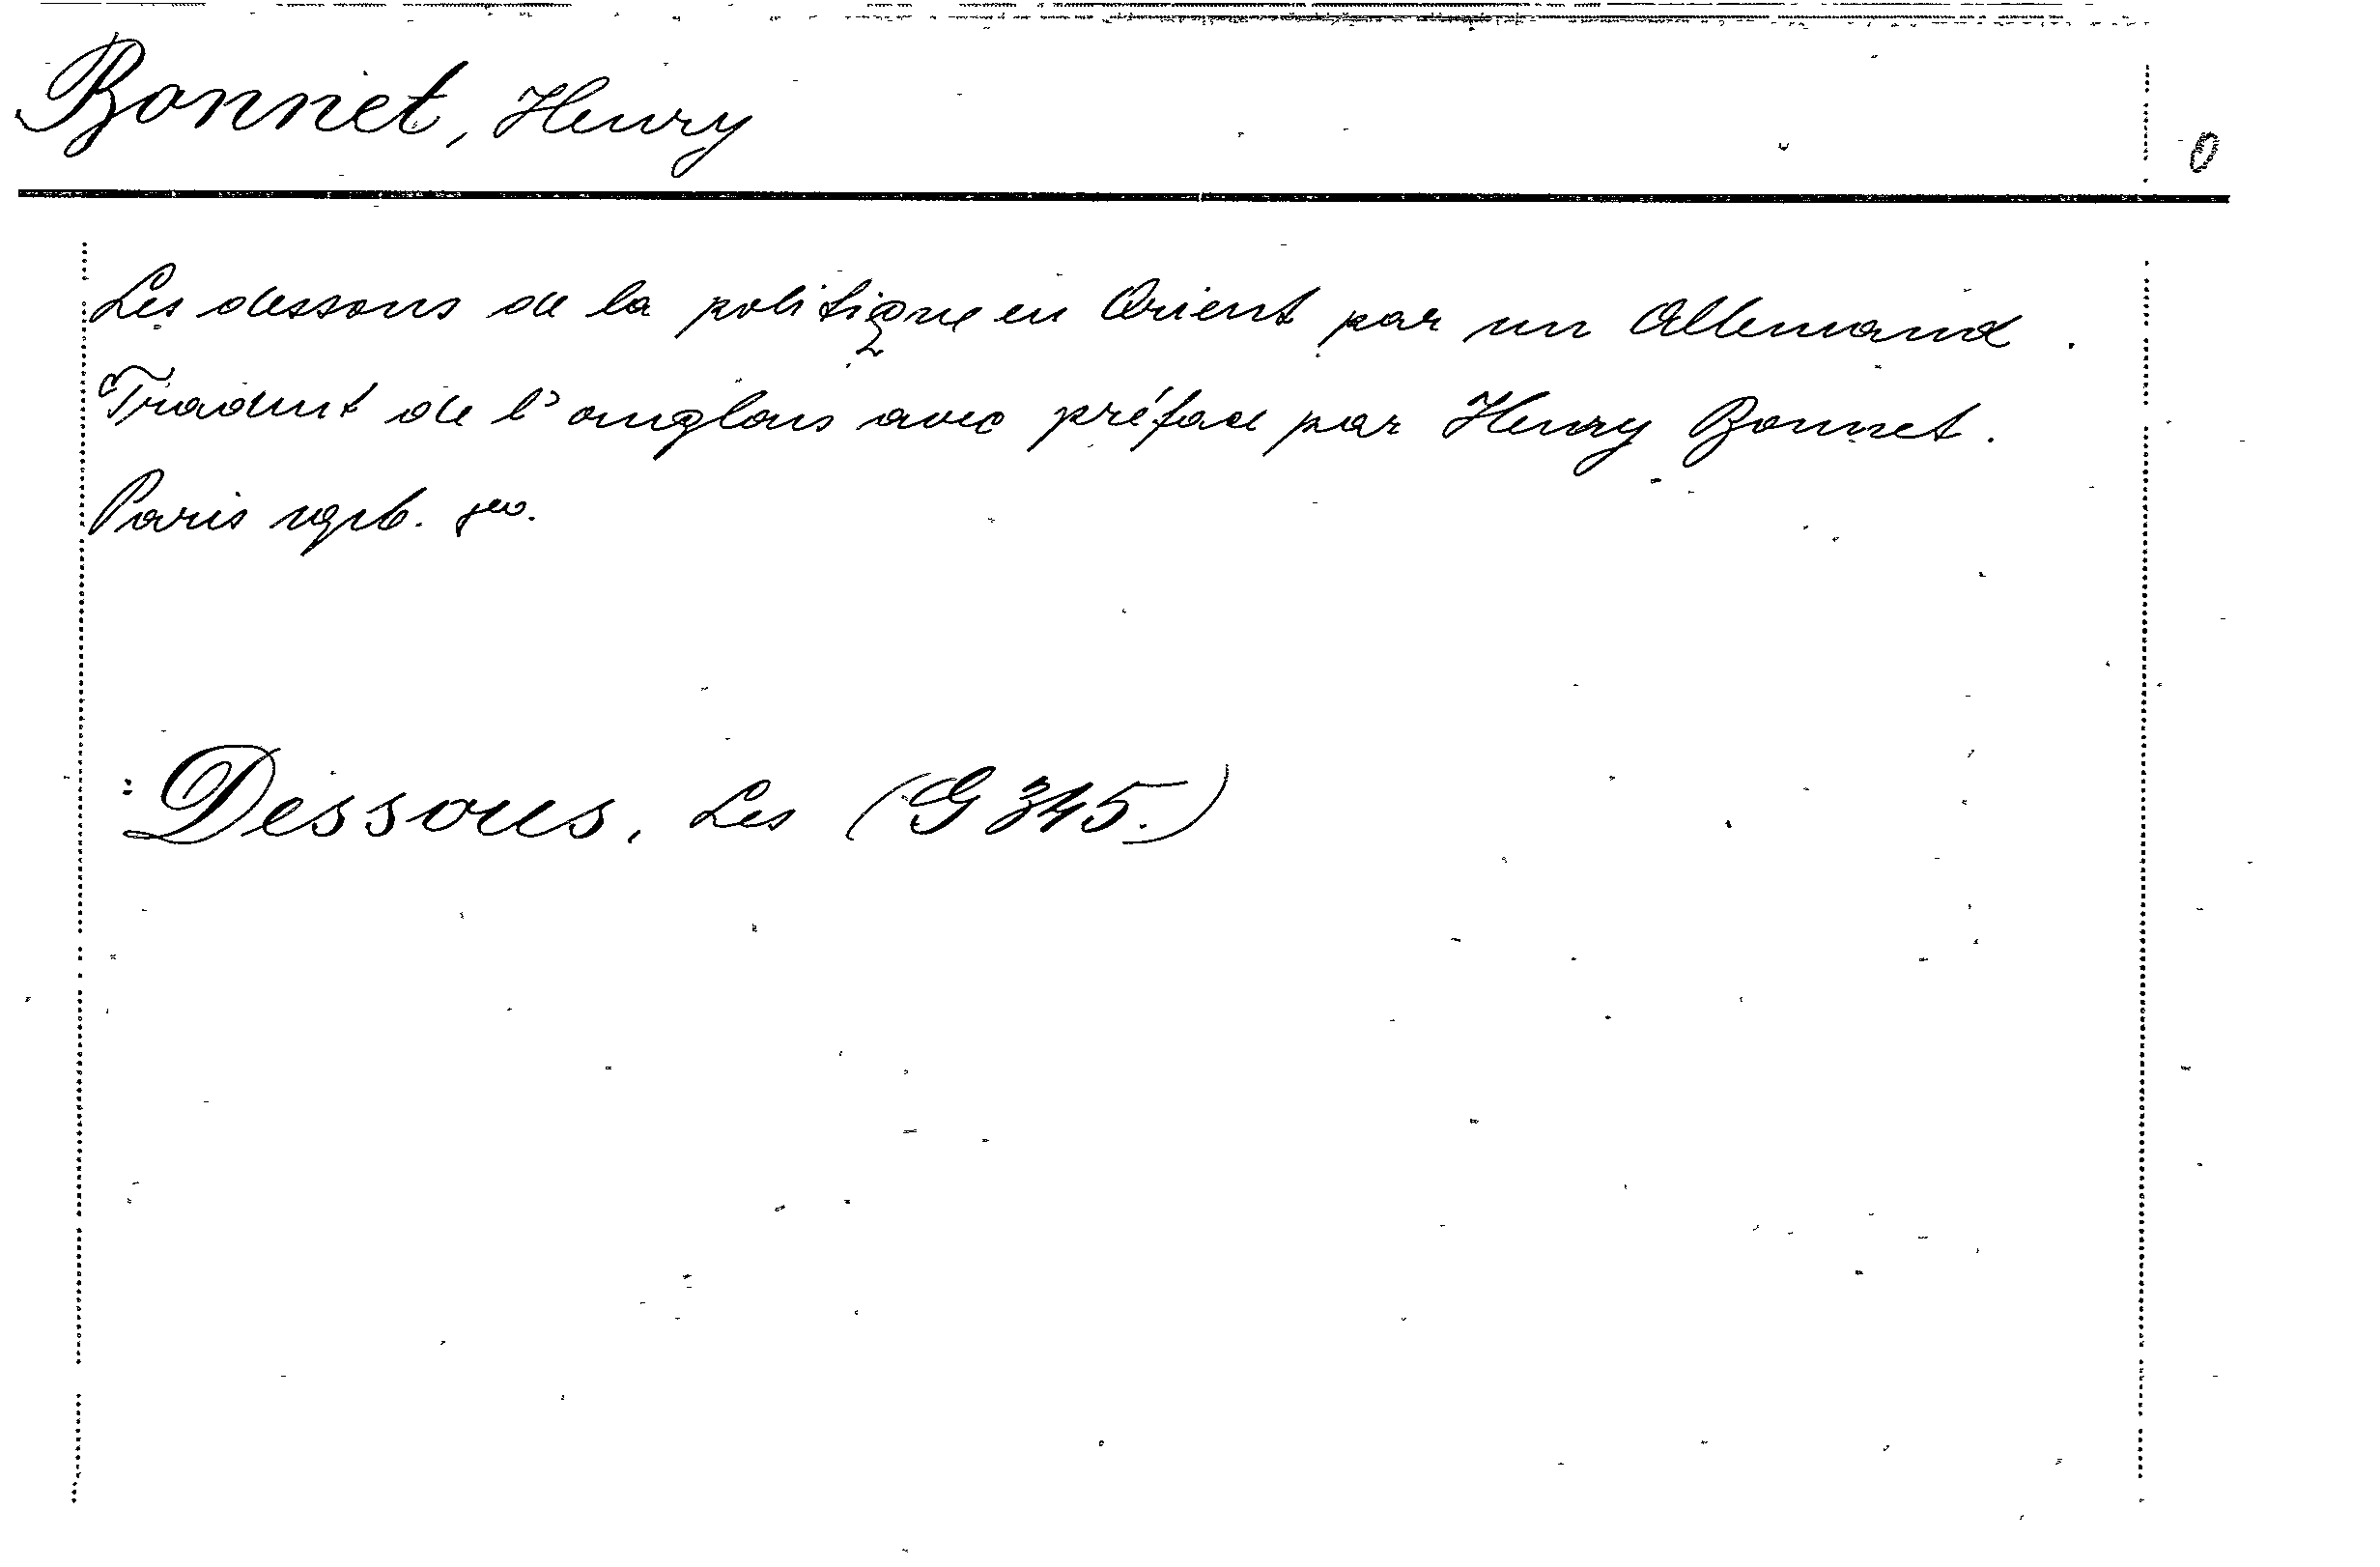 Bonnet, Henry
Les dessous de la politique en Orient par un Allemand.
Traduit de l'anglais avec préface par Henry Bonnet.
Paris 1916. 8vo.
Dessous, Les (G 345.)